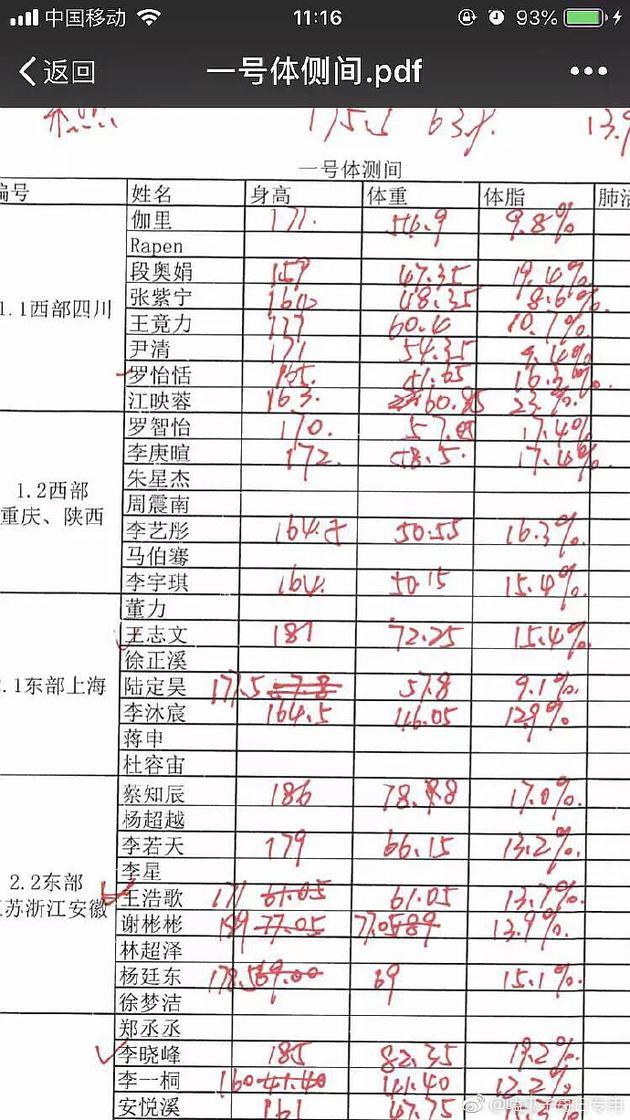 中国移动 11:16 93%
返回 一号体侧间.pdf
175.5 63.8.
一号体测间
编号 姓名 身高 体重 体脂 肺活
伽里 171. 56.9 9.8%
Rapen
段奥娟 157 47.35 19.4%
1.1西部四川
张紫宁 164 48.35 8.6%
王竟力 177 60.4 10.7%
尹清 171 54.35 9.4%
罗怡恬 165. 51.65 16.3%
江映蓉 163. 60.85 23%.
罗智怡 170. 57.05 17.4%
李庚暄 172. 58.5. 17.4%
朱星杰
1.2西部
重庆、陕西
周震南
李艺彤 164.5 50.55 16.3%
马伯骞
李宇琪 164. 50.15 15.4%
董力
王志文 187 72.25 15.4%
徐正溪
2.1东部上海
陆定昊 177.5 57.8 9.1%.
李沐宸 164.5 46.05 12.9%
蒋申
杜容宙
蔡知辰 186 78.88 17.0%.
杨超越
李若天 179 66.15 13.2%.
李星
2.2东部
江苏浙江安徽
王浩歌 171 61.05 61.05 13.7%.
谢彬彬 189 77.05 77.05 89 13.9%.
林超泽
杨廷东 178.5 69.00 69 15.1%.
徐梦洁
郑丞丞
李晓峰 185 82.35 19.2%.
李一桐 160 41.40 41.40 12.2%
安悦溪 161 47.75